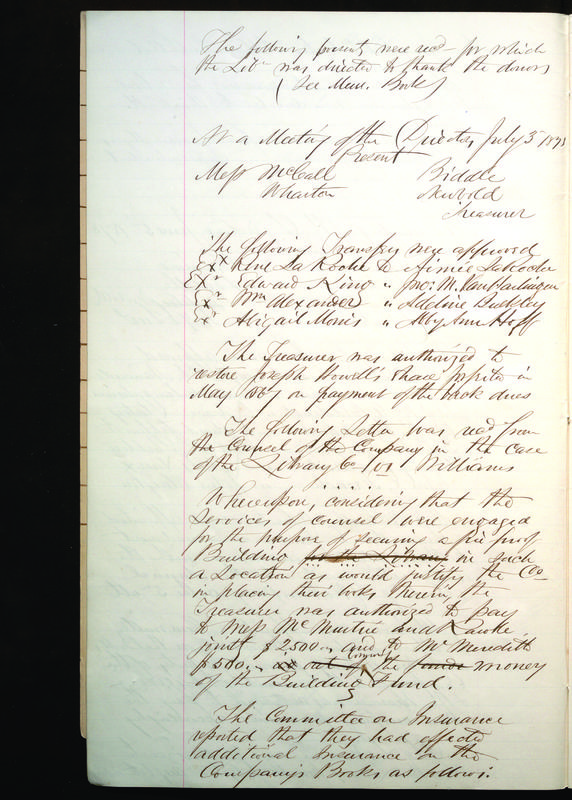 The following presents were recd for which
the Libn was directed to thank the donors
(See Mem. Book)
At a Meeting of the Directors July 3 1873
Present
Messrs McCall Biddle
Wharton Newbold
Treasurer
The following Transfers were approved
Ex René La Roche to Aimée LaRoche
Ex Edward King " Jno: M.
Ex Wm Alexander " Adeline Buckley
Ex Abigail Morris " Abby Ann Hoff
The Treasurer was authorized to
restore Joseph Howell's share forfeited in
May 1867 on payment of the back dues
The following Letter was recd from
the Counsel of the Company in the case
of the Library Co vs Williams
Whereupon, considering that the
services of counsel were engaged
for the purpose of securing a fire proof
Building for the Library in such
a Location as would justify the Co
in placing their books therein, the
Treasurer was authorized to pay
to Mess McMurtrie and Rawle
jointly $2500.. and to Mr Meredith
$500.. out of the funds money
of the Building Fund.
The Committee on Insurance
reported that they had effected
additional Insurance on the
Company's Books as follows: